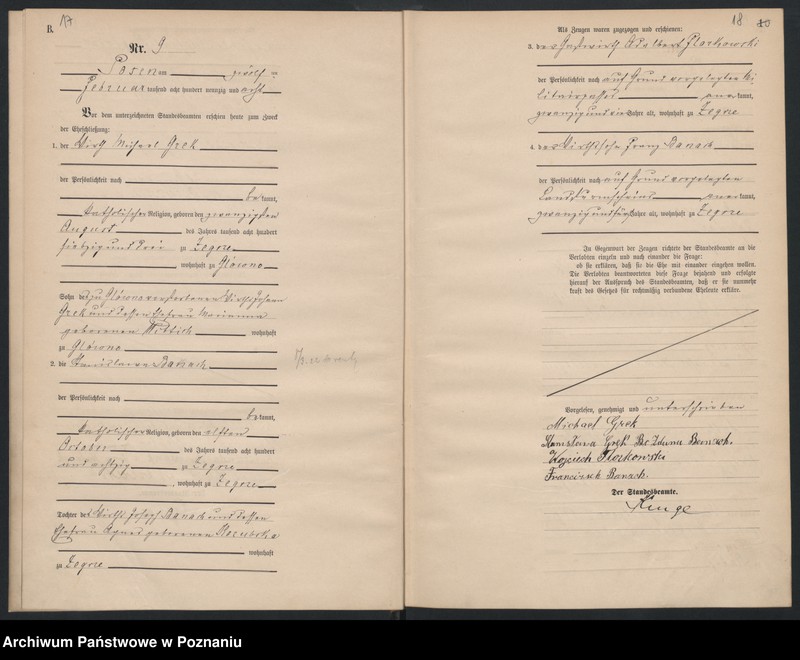 B. 17
Nr. 9
Posen am zwölften
Februar tausend acht hundert neunzig und acht
Vor dem unterzeichneten Standesbeamten erschien heute zum Zweck
der Eheschließung:
1. der Wirth Michael Grek
der Persönlichkeit nach
be kannt,
katholischer Religion, geboren den zwanzigsten
August des Jahres tausend acht hundert
siebzig und drei zu Zegrze
wohnhaft zu Glówno
Sohn des zu Glówno verstorbenen Wirths Johann
Grek und dessen Ehefrau Marianna
geborenen Wittich wohnhaft
zu Glówno
2. die Stanislawa Banach
der Persönlichkeit nach
be kannt,
katholischer Religion, geboren den elften
October des Jahres tausend acht hundert
und achtzig zu Zegrze
, wohnhaft zu Zegrze
Tochter des Wirths Joseph Banach und dessen
Ehefrau Agnes geborenen
wohnhaft
zu Zegrze
18
Als Zeugen waren zugezogen und erschienen:
3. der Gastwirth Adalbert Florkowski
der Persönlichkeit nach auf Grund vorgelegten Mi-
litairpasses aner kannt,
zwanzig und Jahre alt, wohnhaft zu Zegrze
4. der Wirthssohn Franz Banach
der Persönlichkeit nach auf Grund vorgelegten
Landsturmscheins aner kannt,
zwanzig und fünf Jahre alt, wohnhaft zu Zegrze
In Gegenwart der Zeugen richtete der Standesbeamte an die
Verlobten einzeln und nach einander die Frage:
ob sie erklären, daß sie die Ehe mit einander eingehen wollen.
Die Verlobten beantworteten diese Frage bejahend und erfolgte
hierauf der Ausspruch des Standesbeamten, daß er sie nunmehr
kraft des Gesetzes für rechtmäßig verbundene Eheleute erkläre.
Vorgelesen, genehmigt und unterschrieben
Michael Grek
Stanisława Grek Banach.
Wojciech Florkowski
Franciszek Banach.
Der Standesbeamte.
Archiwum Państwowe w Poznaniu